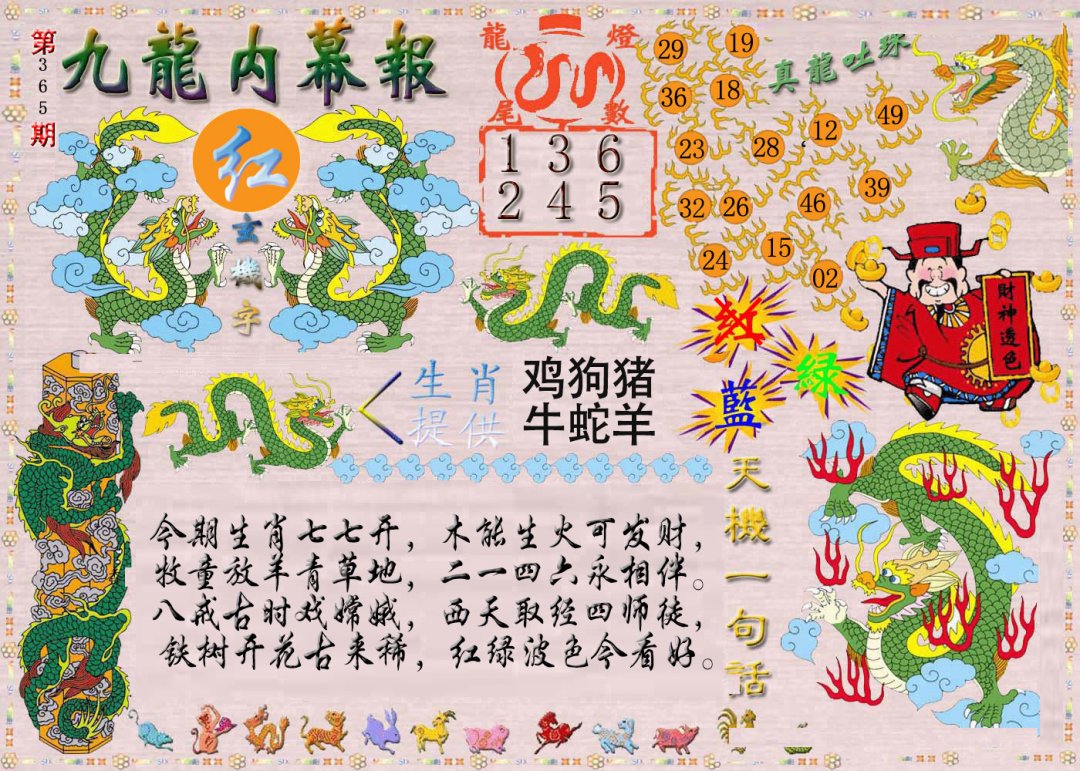 第365期
九龍内幕報
红
玄機字
龍燈
尾數
1 3 6
2 4 5
真龍吐珠
29 19
36 18
23 28 12 49
32 26 46 39
24 15 02
財神透色
红
綠
藍
生肖
提供
鸡狗猪
牛蛇羊
天機一句話
今期生肖七七开，木能生火可发财，
牧童放羊青草地，二一四六永相伴。
八戒古时戏嫦娥，西天取经四师徒，
铁树开花古来稀，红绿波色今看好。